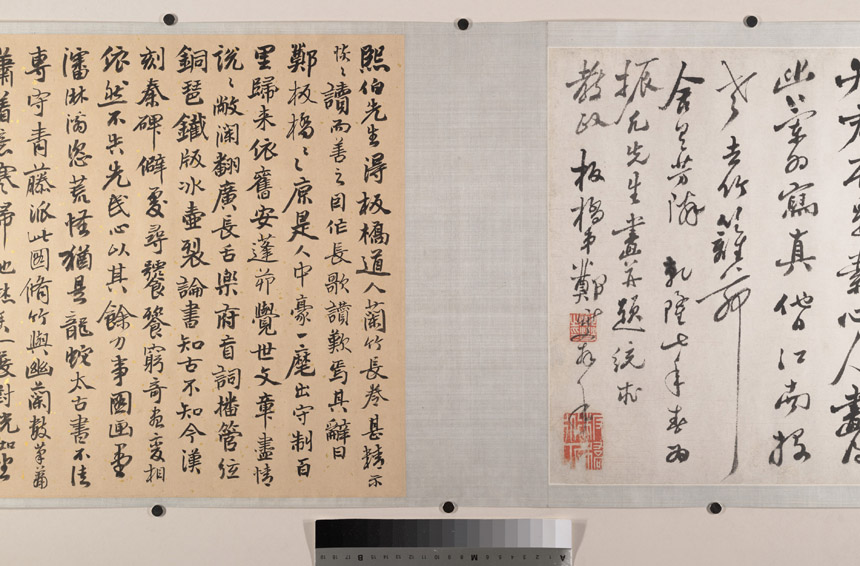 素心人畫
寫真借江南
老去竹籬
芳隣 乾隆七年春為
振凡先生畫并題統求
教政 板橋弟鄭燮
熙伯先生得板橋道人蘭竹長卷甚精示
讀而善之因作長歌讚歎焉其辭曰
鄭板橋々原是人中豪一麾出守制百
里歸來依舊安蓬茆覺世文章盡情
說々瀾翻廣長舌樂府盲詞播管絃
銅琶鐵版冰壺裂論書知古不知今漢
刻秦碑僻夏尋饕餮窮奇盡變相
依然不失先民心以其餘力事圖畫墨
瀋淋漓恣荒怪猶是龍蛇太古書不法
專守青藤派此圖脩竹與幽蘭數筆蕭
蕭着意寒